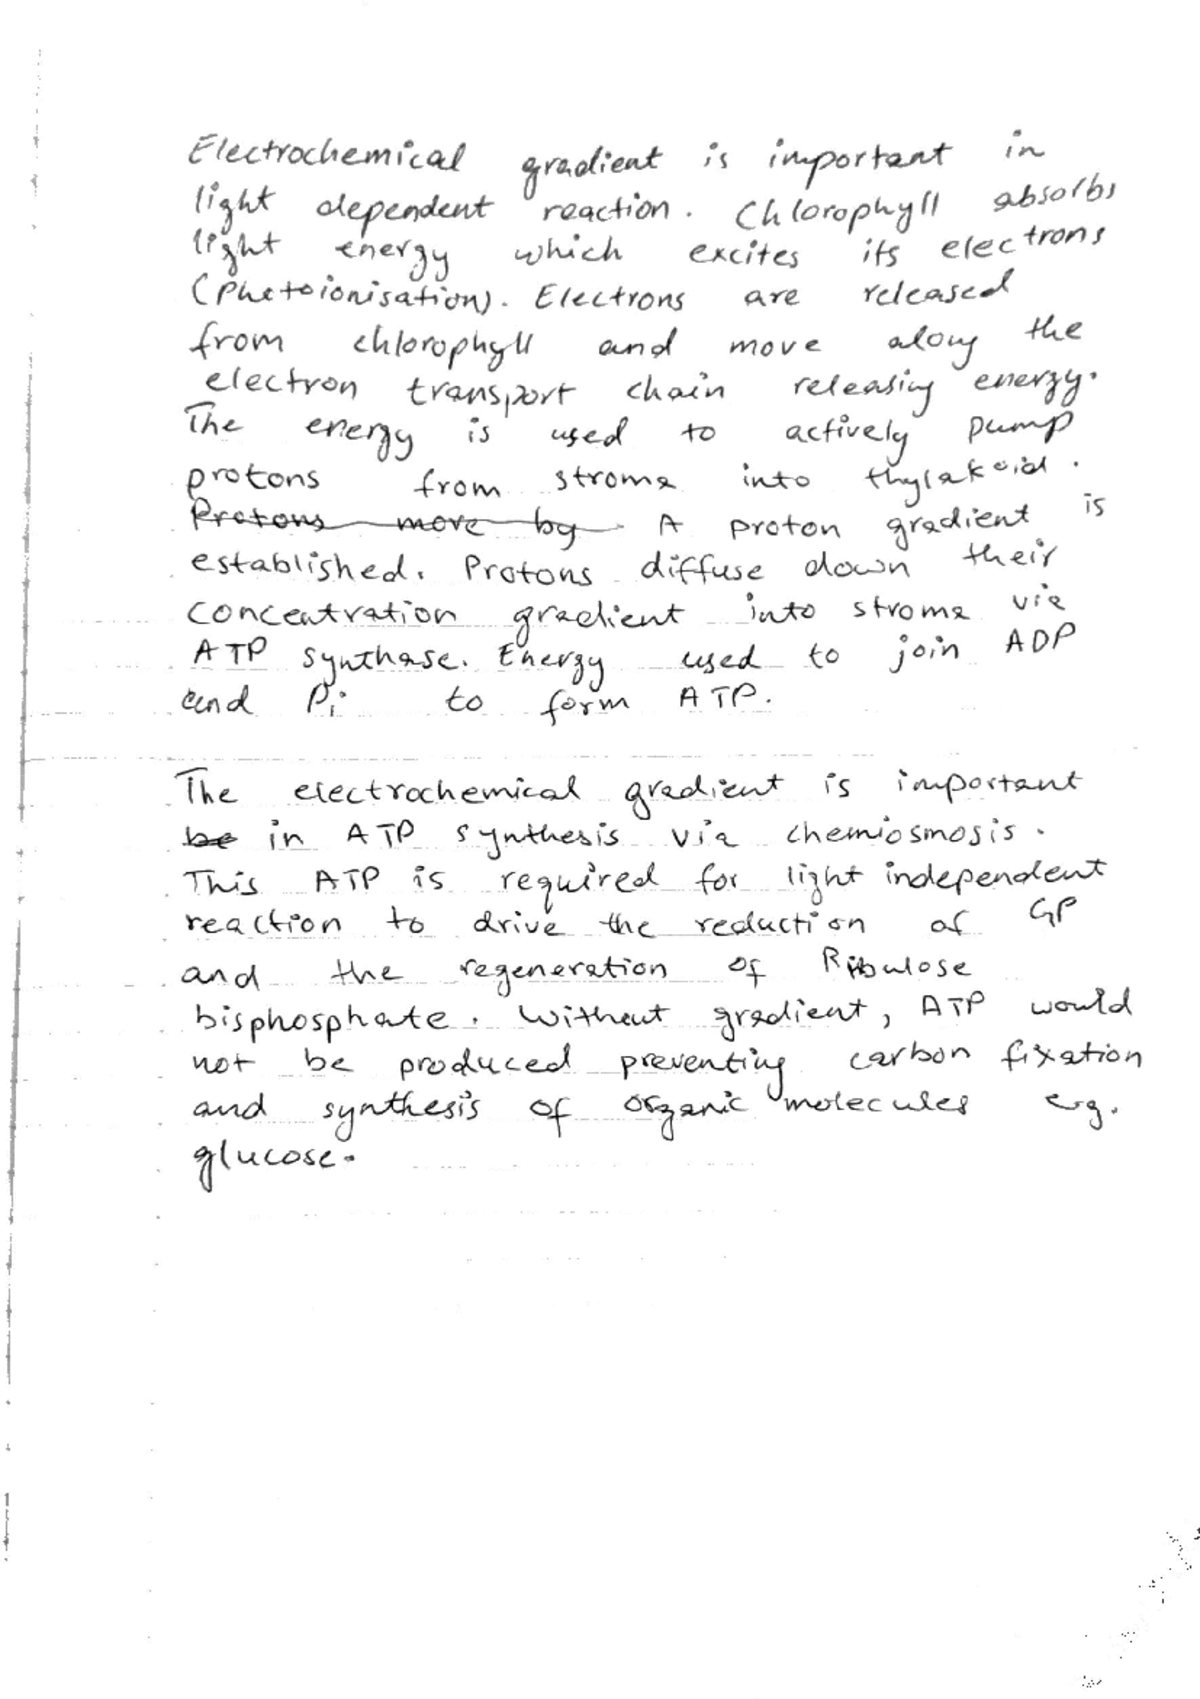 Electrochemical gradient is important in
light dependent reaction. Chlorophyll absorbs
light energy which excites its electrons
(Photoionisation). Electrons are released
from chlorophyll and move along the
electron transport chain releasing energy.
The energy is used to actively pump
protons from stroma into thylakoid.
Protons move by A proton gradient is
established. Protons diffuse down their
concentration gradient into stroma via
ATP synthase. Energy used to join ADP
and Pi to form ATP.
The electrochemical gradient is important
be in ATP synthesis via chemiosmosis.
This ATP is required for light independent
reaction to drive the reduction of GP
and the regeneration of Ribulose
bisphosphate. Without gradient, ATP would
not be produced preventing carbon fixation
and synthesis of organic molecules e.g.
glucose.